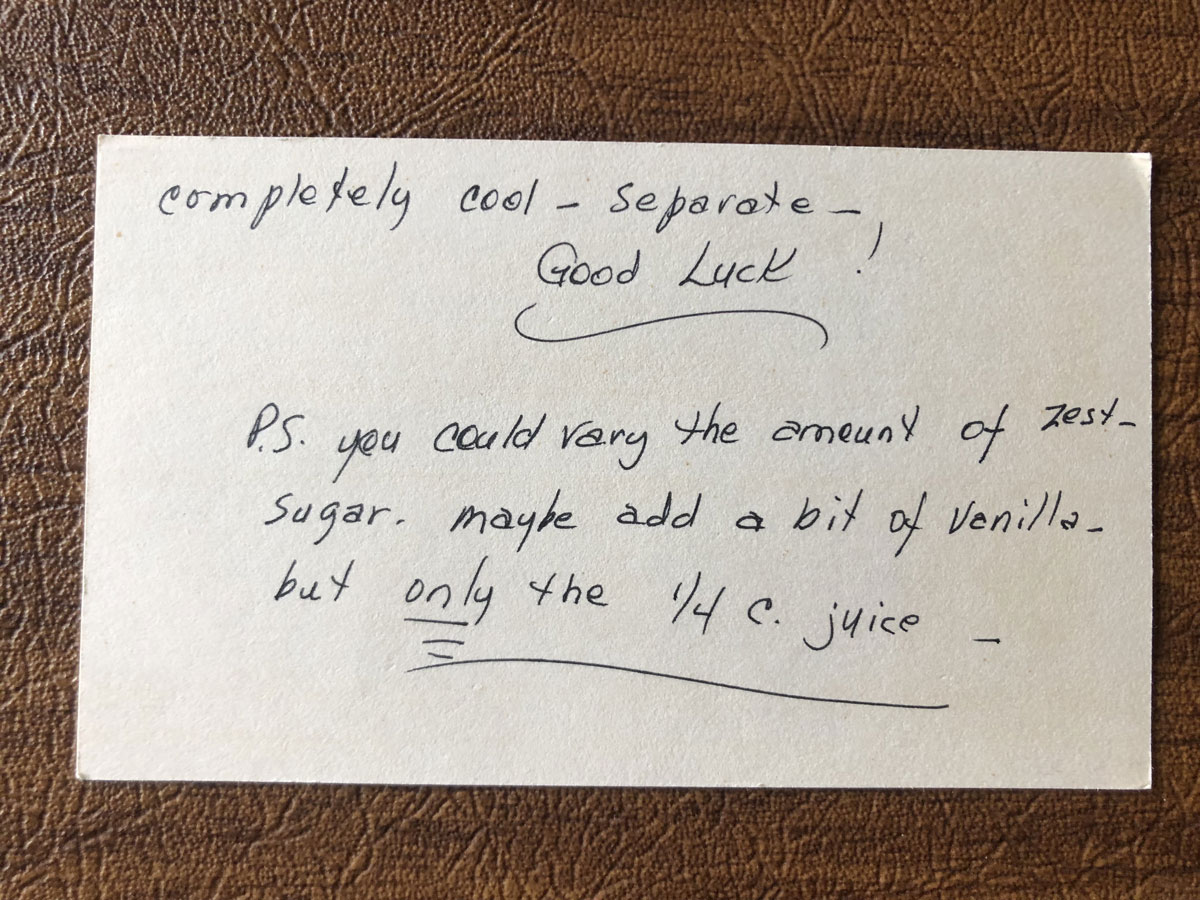 completely cool - separate -
Good Luck !
P.S. you could vary the amount of zest -
sugar. maybe add a bit of vanilla -
but only the 1/4 c. juice -